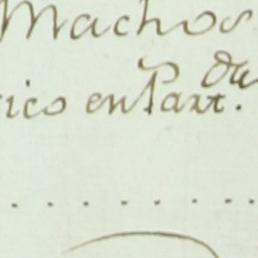 Machos
rico en Part.